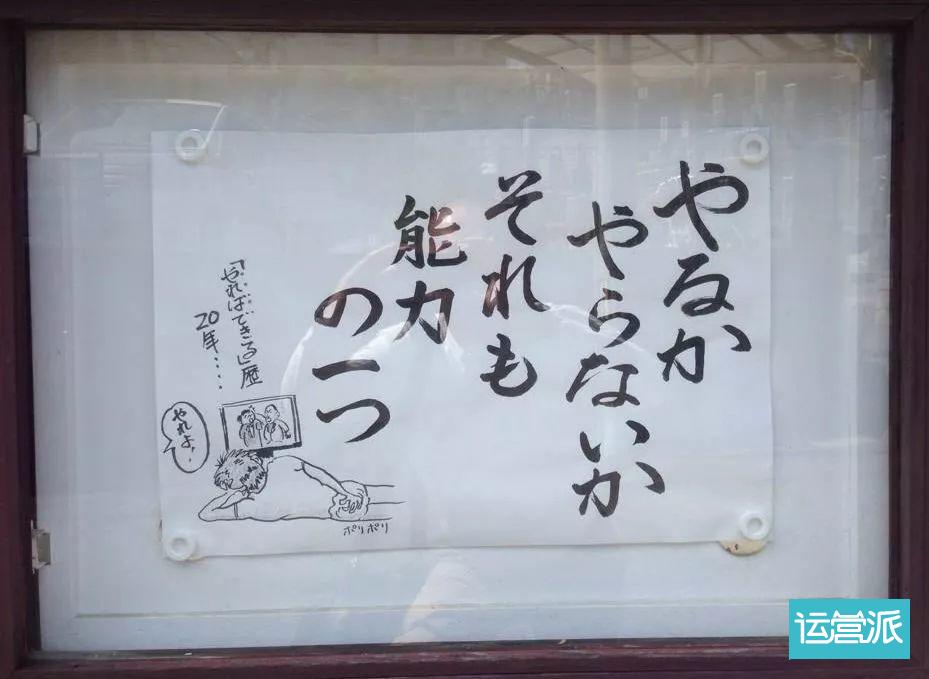 やるか
やらないか
それも
能力
の一つ
「やればできる」歴
20年・・・・
やれよ!
ポリポリ
运营派